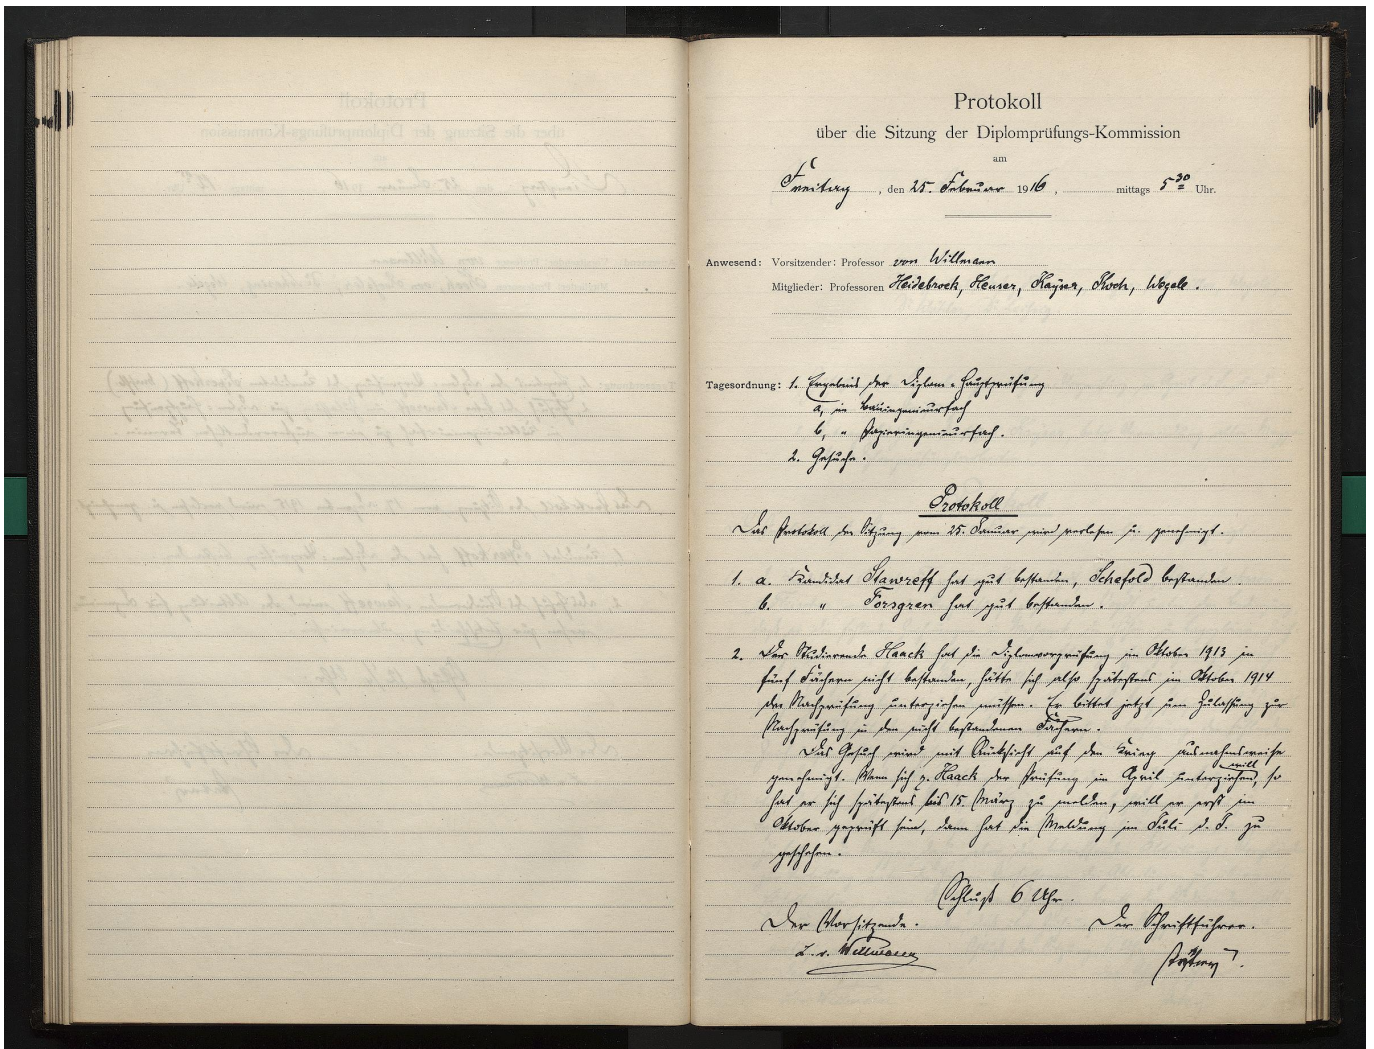 Protokoll
über die Sitzung der Diplomprüfungs-Kommission
am
Freitag, den 25. Februar 1916, mittags 5 30 Uhr.
Anwesend: Vorsitzender: Professor von Willmann
Mitglieder: Professoren Heidebroek, Heuser, Kayser, Koch, Wegele.
Tagesordnung: 1. Ergebnis der Diplom-Hauptprüfung
a, im Bauingenieurfach
b, " Papieringenieurfach.
2. Gesuche.
Protokoll
Das Protokoll der Sitzung vom 25. Januar wird verlesen u. genehmigt.
1. a. Kandidat Stawreff hat gut bestanden, Schefold bestanden.
b. " Forsgren hat gut bestanden.
2. Der Studierende Haack hat die Diplomvorprüfung im Oktober 1913 in
fünf Fächern nicht bestanden, hätte sich also spätestens im Oktober 1914
der Nachprüfung unterziehen müssen. Er bittet jetzt um Zulassung zur
Nachprüfung in den nicht bestandenen Fächern.
Das Gesuch wird mit Rücksicht auf den Krieg ausnahmsweise
genehmigt. Wenn sich p. Haack der Prüfung im April unterziehen will, so
hat er sich spätestens bis 15. März zu melden, will er erst im
Oktober geprüft sein, dann hat die Meldung im Juli d. J. zu
geschehen.
Schluß 6 Uhr.
Der Vorsitzende. Der Schriftführer.
L. v. Willmann